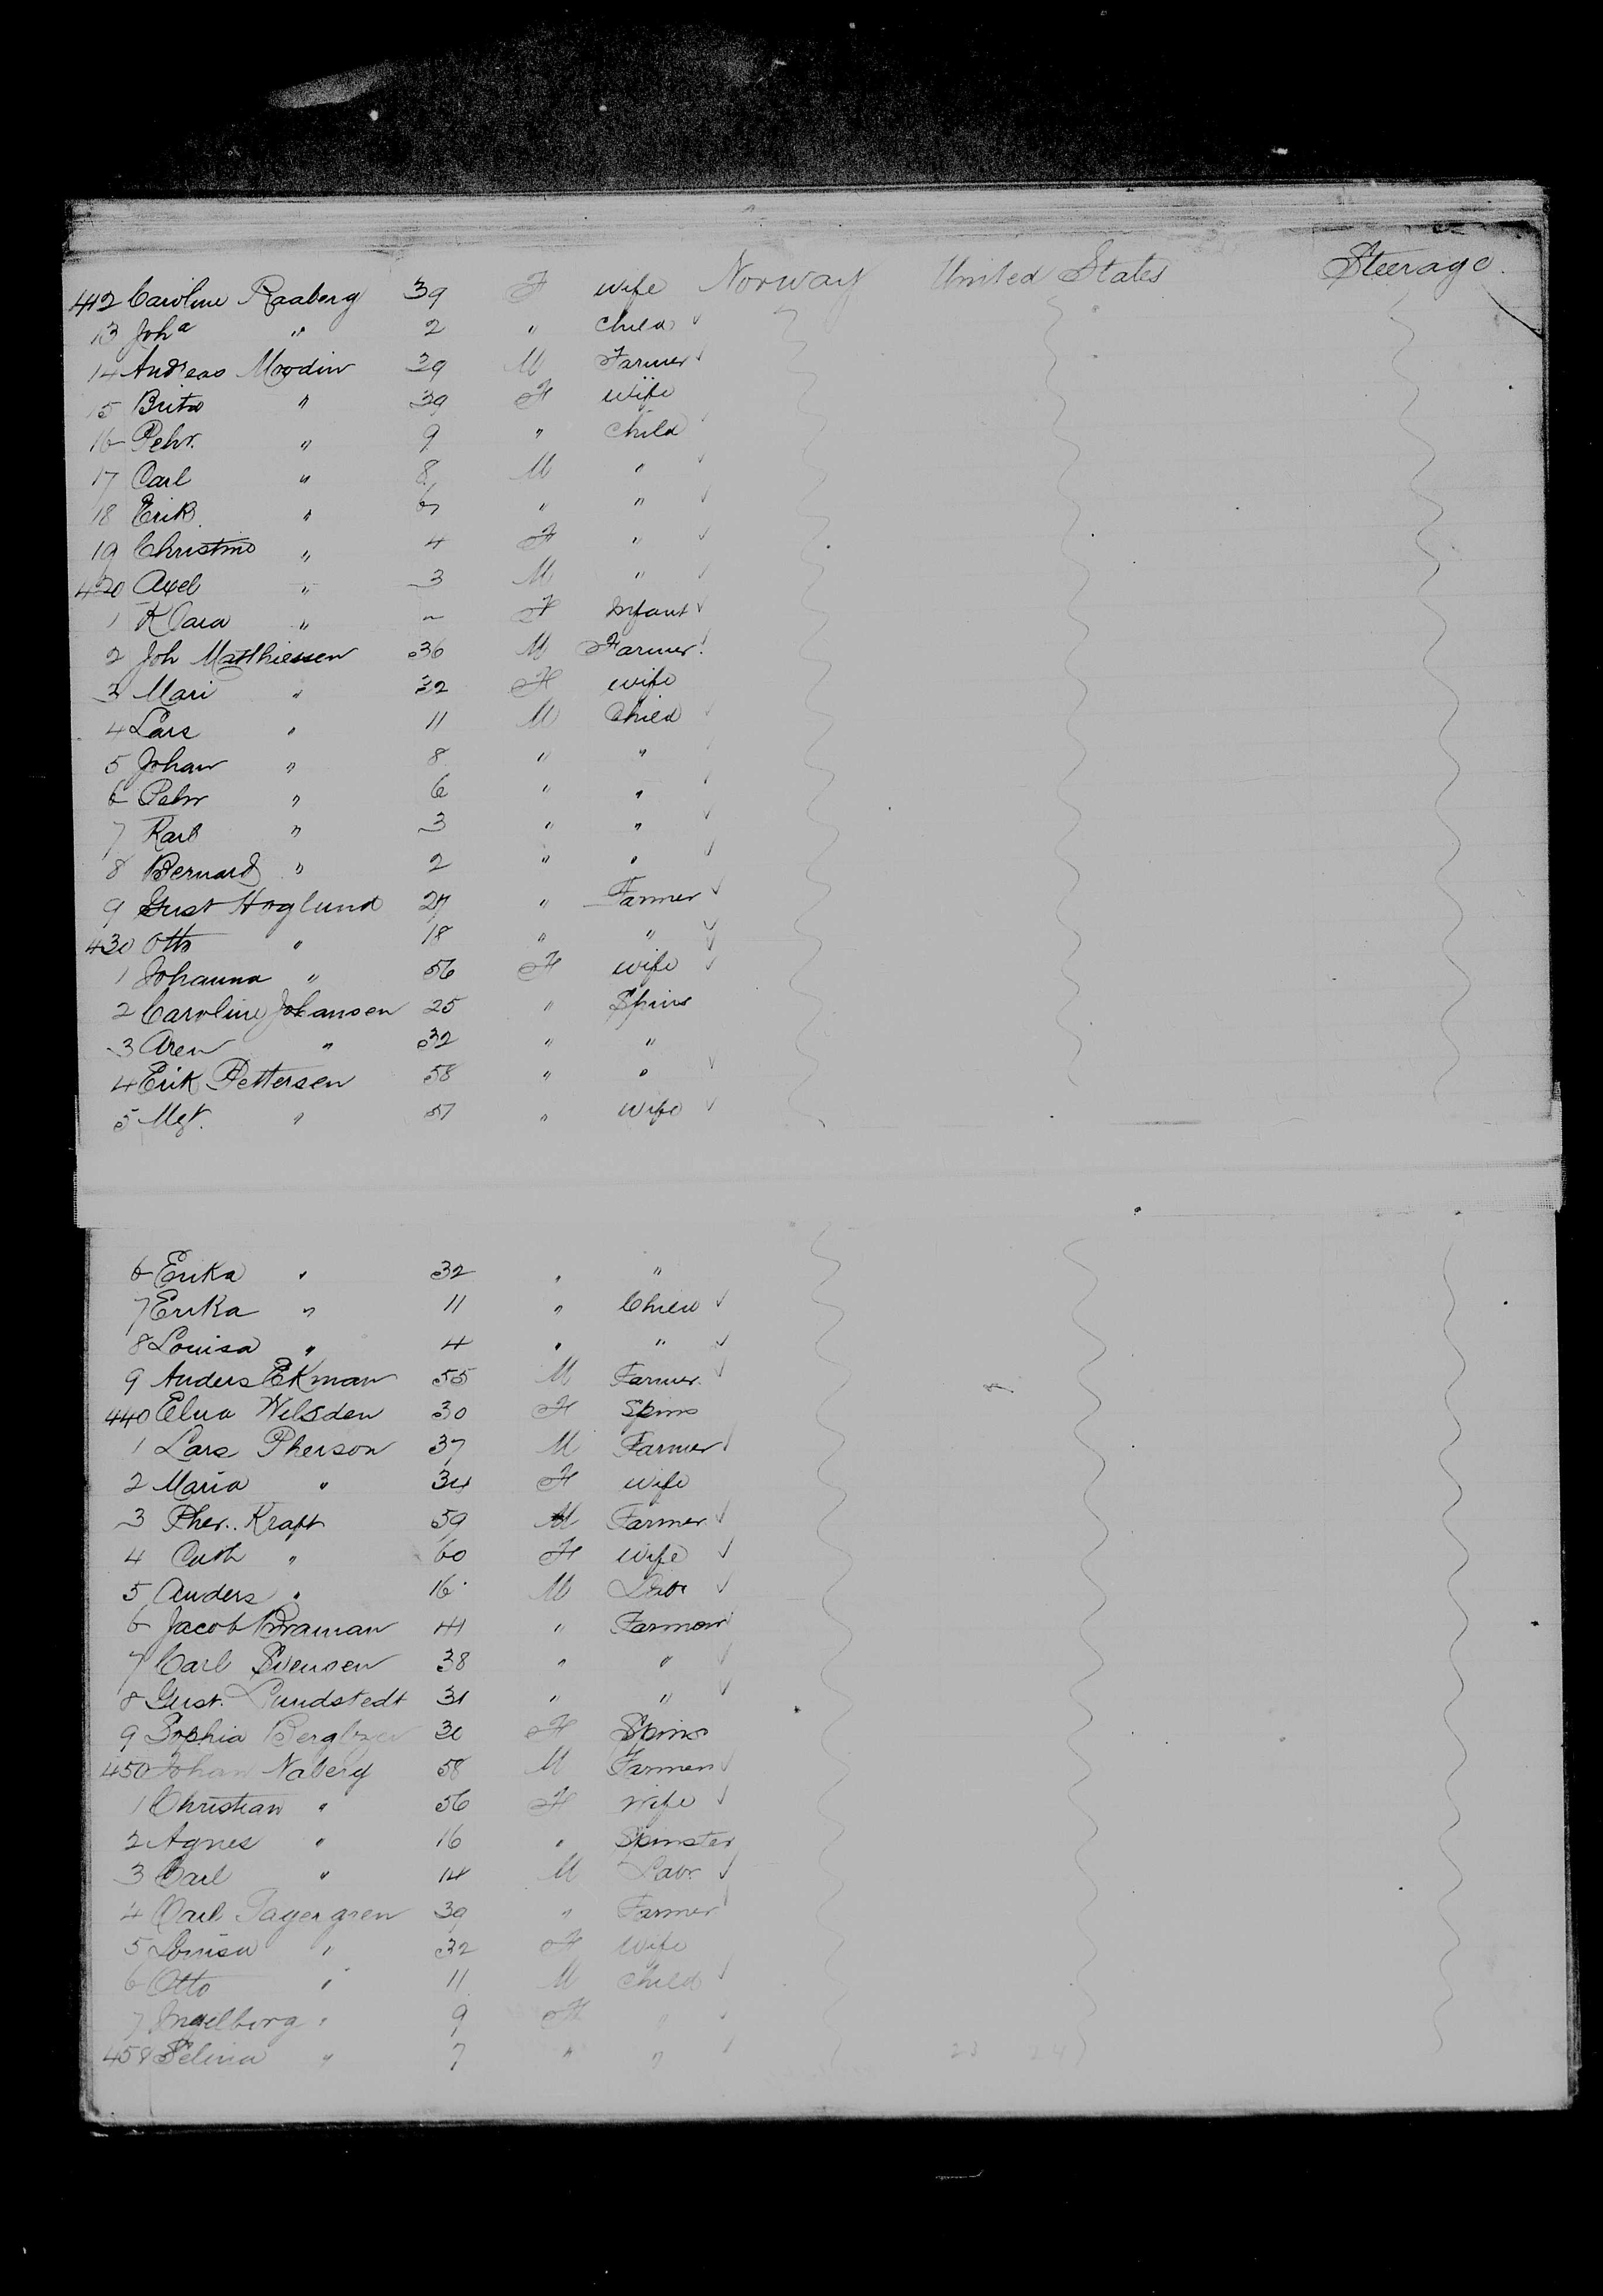 412 Caroline Raaberg 39 F wife Norway United States Steerage.
13 Joha " 2 " Child
14 Andreas Moodin 39 M Farmer
15 Brita " 39 F wife
16 Pehr. " 9 " Child
17 Carl " 8 M "
18 Erik " 6 " "
19 Christine " 4 F "
420 Axel " 3 M "
1 Klara " ~ F Infant
2 Joh Matthiessen 36 M Farmer
3 Mari " 32 F wife
4 Lars " 11 M Child
5 Johan " 8 " "
6 Pehr " 6 " "
7 Karl " 3 " "
8 Bernard " 2 " "
9 Gust Hoglund 27 " Farmer
430 Otto " 18 " "
1 Johanna " 56 F wife
2 Caroline Johansen 25 " Spins
3 Aren " 32 " "
4 Erik Pettersen 58 " "
5 Mgt. " 57 " wife
6 Erika " 32 " "
7 Erika " 11 " Child
8 Louisa " 4 " "
9 Anders Ekman 55 M Farmer
440 Elna Wilsden 30 F Spins
1 Lars Pherson 37 M Farmer
2 Maria " 34 F wife
3 Pher. Kraft 59 M Farmer
4 Cath " 60 F wife
5 Anders " 16 M Labr
6 Jacob Braman 41 " Farmer
7 Carl Svensen 38 " "
8 Gust. Lundstedt 31 " "
9 Sophia 30 F Spins
450 Johan Naberg 58 M Farmer
1 Christian " 56 F wife
2 Agnes " 16 " Spinster
3 Carl " 14 M Labr
4 Carl Fagergren 39 " Farmer
5 Louisa " 32 F wife
6 Otto " 11 M Child
7 Ingelborg " 9 F "
458 Selina " 7 " "